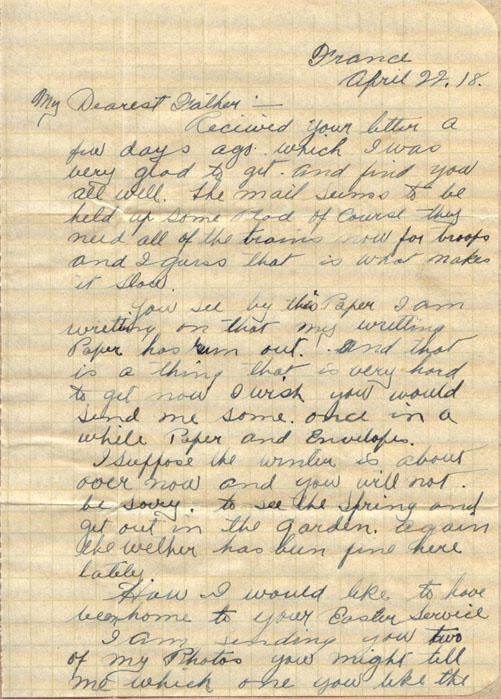 France
April 22. 18.
My Dearest Father:—
Recieved your letter a
few days ago. which I was
very glad to get. and find you
all well. The mail seems to be
held up some of course they
need all of the trains now for troops
and I guess that is what makes
it slow.
You see by this Paper I am
writting on that my writting
Paper has run out. And that
is a thing that is very hard
to get now I wish you would
send me some. once in a
while Paper and Envelopes.
I suppose the winter is about
over now and you will not.
be sorry. to see the Spring and
get out in the garden. again
the wether has been fine here
lately
How I would like to have
been home to your Easter Service
I am sending you two
of my Photos you might tell
me which one you like the